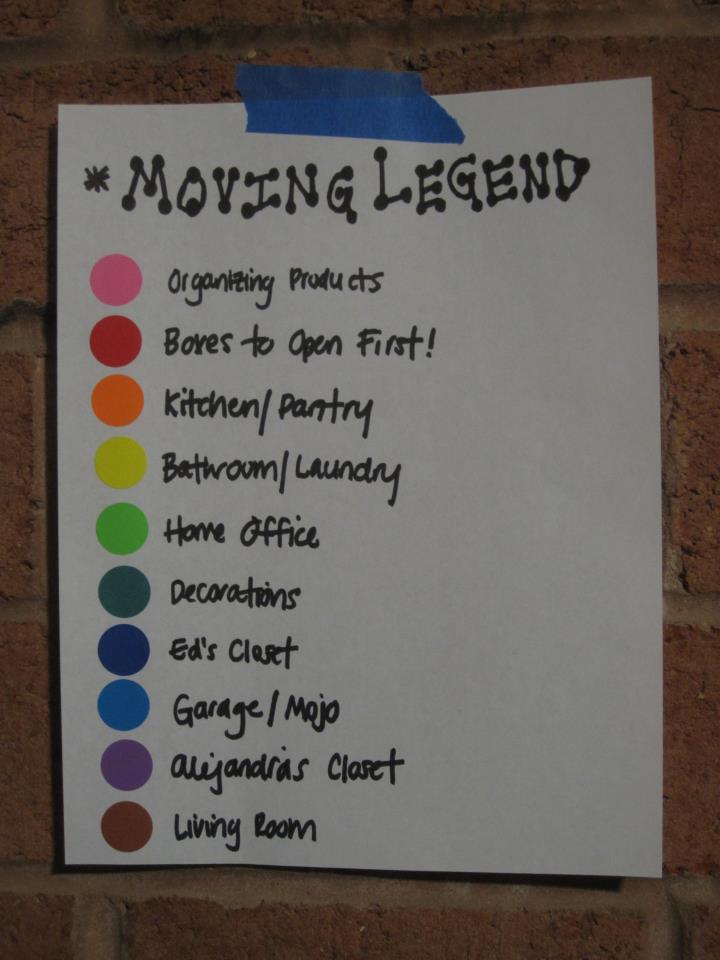 * MOVING LEGEND
Organizing Products
Boxes to Open First!
Kitchen/Pantry
Bathroom/Laundry
Home Office
Decorations
Ed's Closet
Garage/Mojo
Alejandra's Closet
Living Room